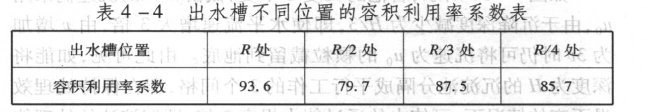 表 4-4 出水槽不同位置的容积利用率系数表
出水槽位置 R 处 R/2 处 R/3 处 R/4 处
容积利用率系数 93.6 79.7 87.5 85.7